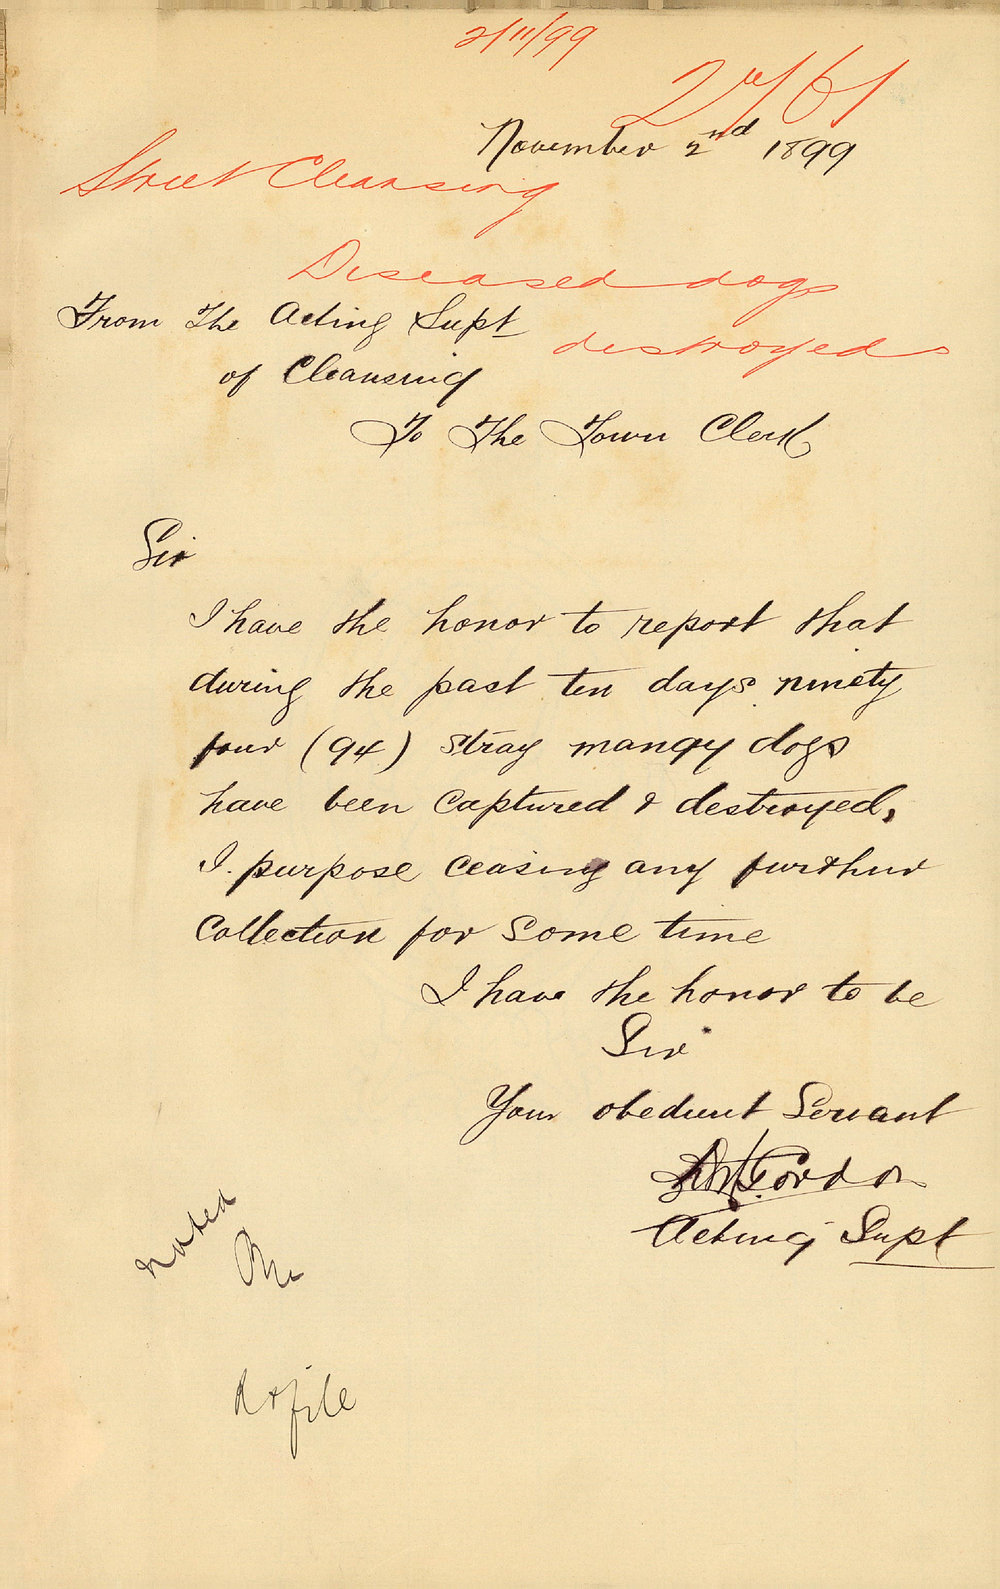 2/11/99
November 2nd 1899
Street Cleansing
Diseased dogs
destroyed
From The Acting Supt
of Cleansing
To The Town Clerk
Sir
I have the honor to report that
during the past ten days ninety
four (94) stray mangy dogs
have been captured & destroyed,
I. purpose ceasing any further
collection for some time
I have the honor to be
Sir
Your obedient Servant
Gordon
Acting Supt
noted
file